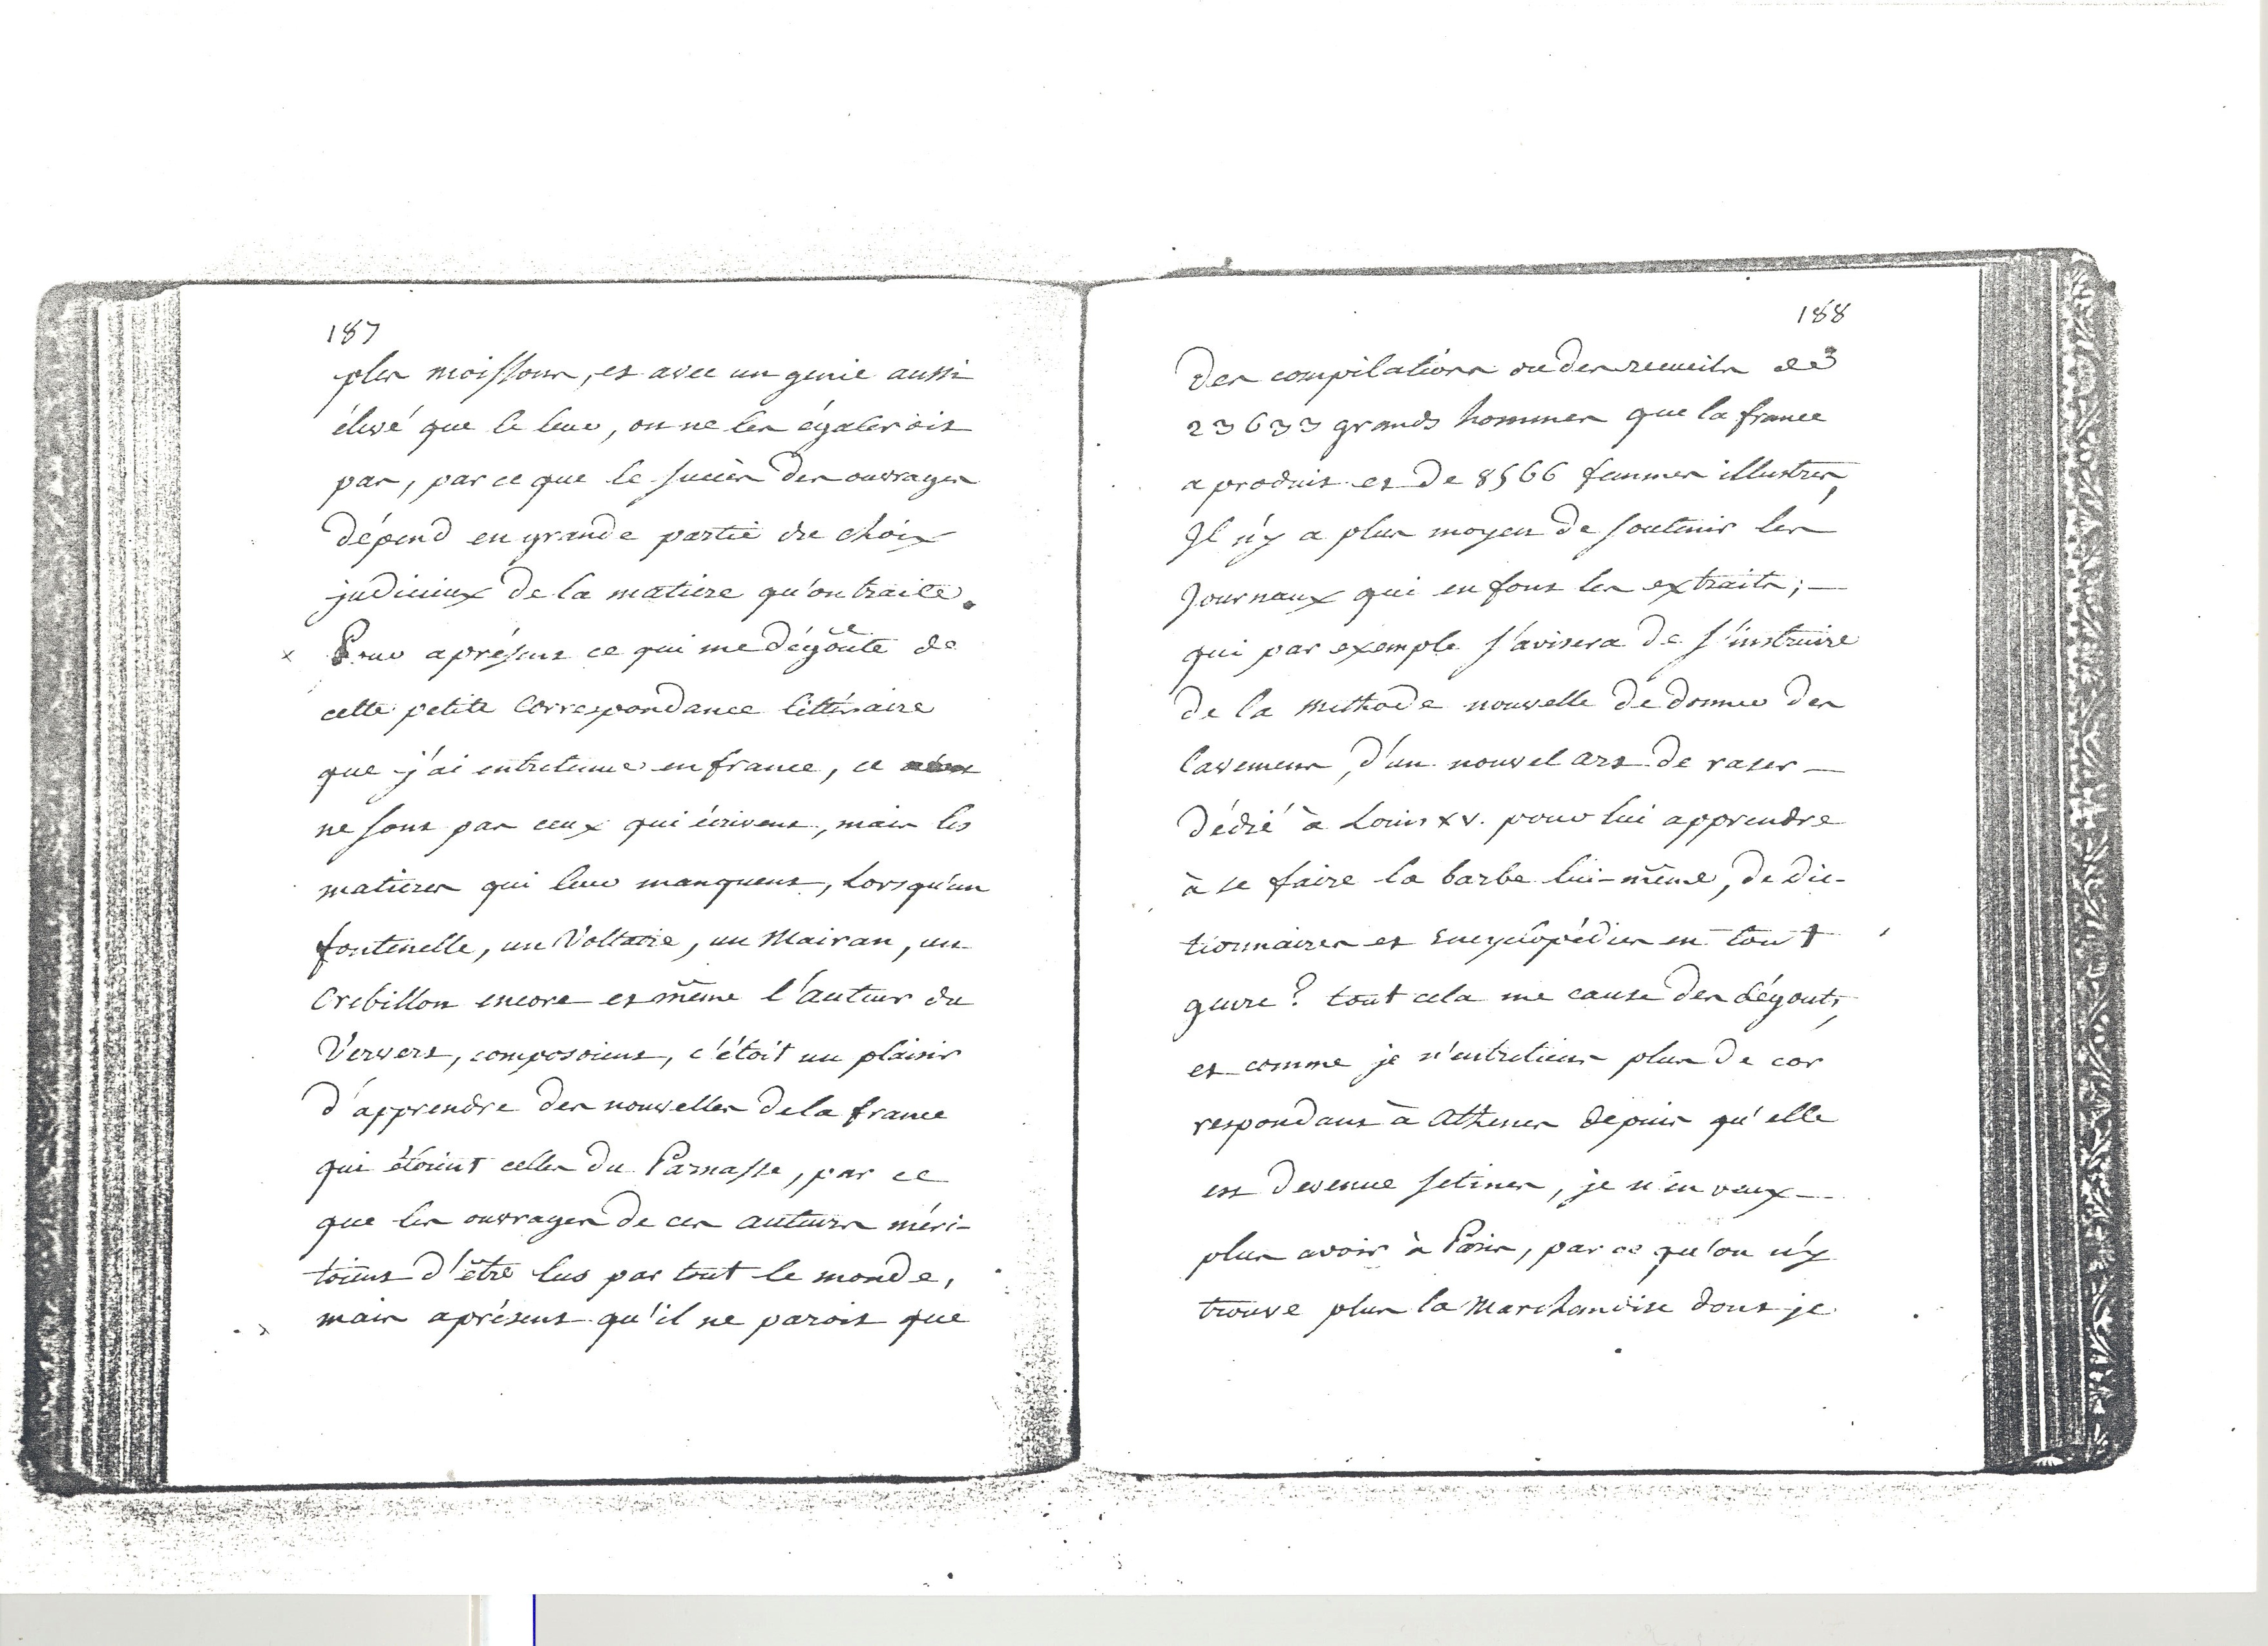 187
ples moissons, et avec un genie aussi
élevé que le leur, on ne les égaleroit
pas, par ce que le succès des ouvrages
dépend en grande partie du choix
judicieux de la matiere qu'on traite.
x Pour aprésent ce qui me dégoûte de
cette petite Correspondance littéraire
que j'ai entretenue en france, ce
ne sont pas ceux qui écrivent, mais les
matieres qui leur manquent, Lorsqu'un
fontenelle, un Voltaire, un Mairan, un
Crebillon encore et même l'auteur du
Ververt, composoient, c'étoit un plaisir
d'apprendre des nouvelles de la france
qui étoient celles du Parnasse, par ce
que les ouvrages de ces auteurs méri-
toient d'être lus par tout le monde,
mais aprésent qu'il ne paroit que
188
des compilations ou des recueils de
23633 grands hommes que la france
a produit et de 8566 femmes illustres,
Il n'y a plus moyen de soutenir les
Journaux qui en font les extraits; —
qui par exemple s'avisera de s'instruire
de la methode nouvelle de donner des
lavemens, d'un nouvel art de raser —
dédié à Louis XV. pour lui apprendre
à se faire la barbe lui-même, de dic-
tionnaires et Encyclopédies en tout
genre? tout cela me cause des dégouts,
et comme je n'entretiens plus de cor
respondant à Athenes depuis qu'elle
est devenue setines, je n'en veux —
plus avoir à Paris, par ce qu'on n'y
trouve plus la Marchandise dont je